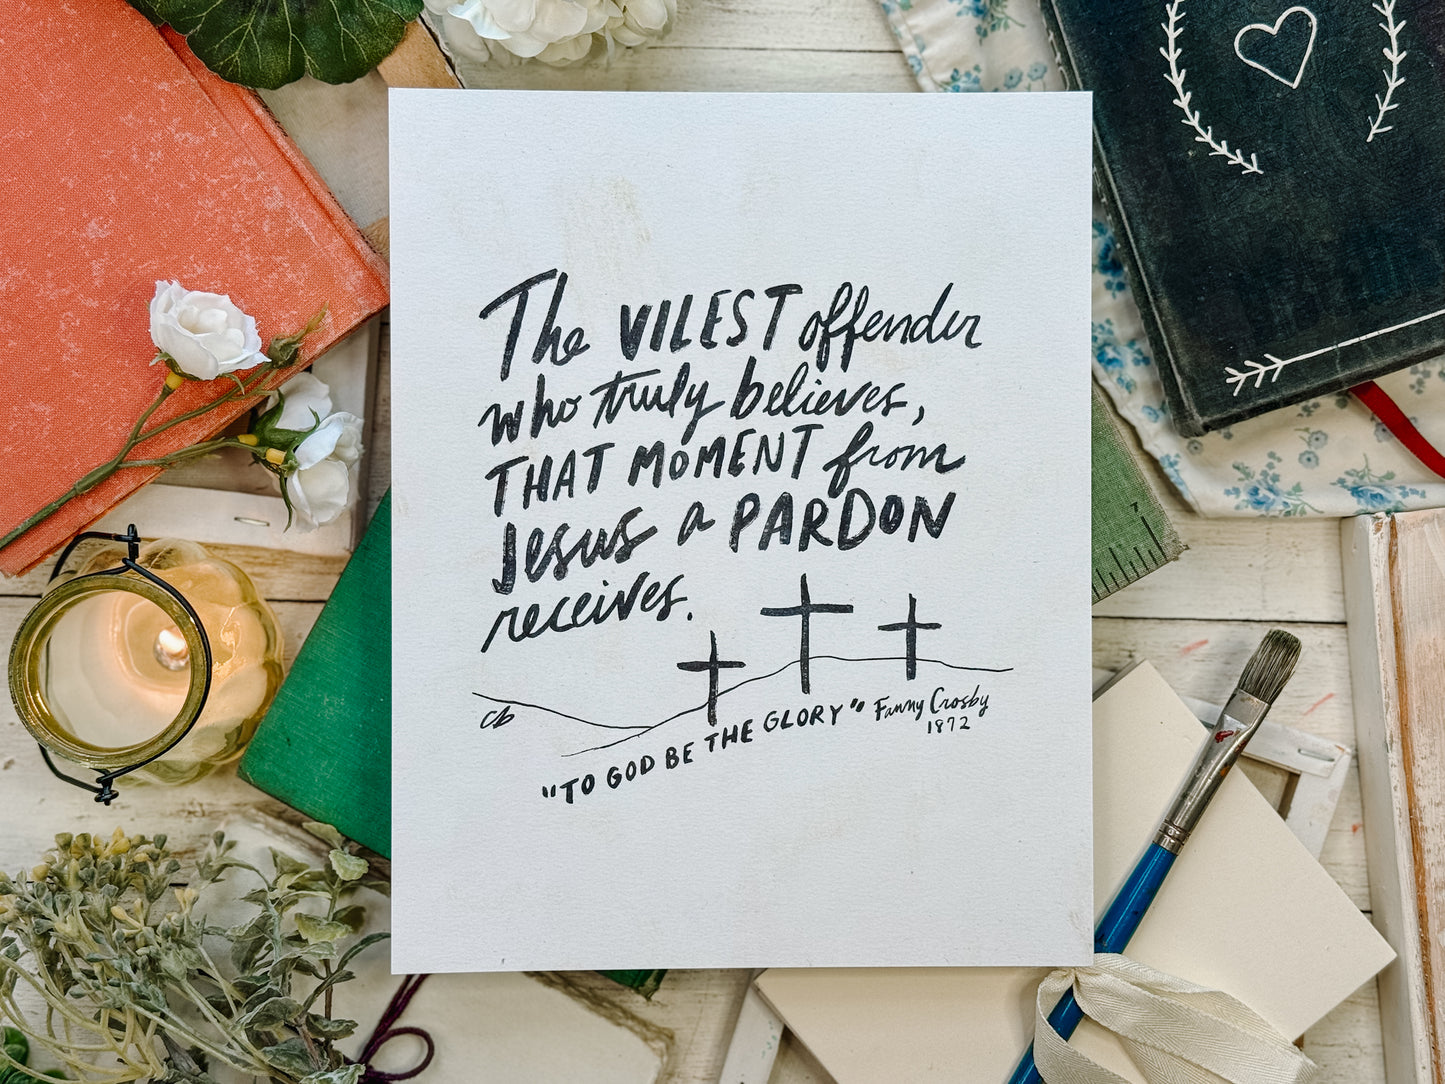 The VILEST offender
who truly believes,
THAT MOMENT from
Jesus a PARDON
receives.
cb
"TO GOD BE THE GLORY" Fanny Crosby
1872